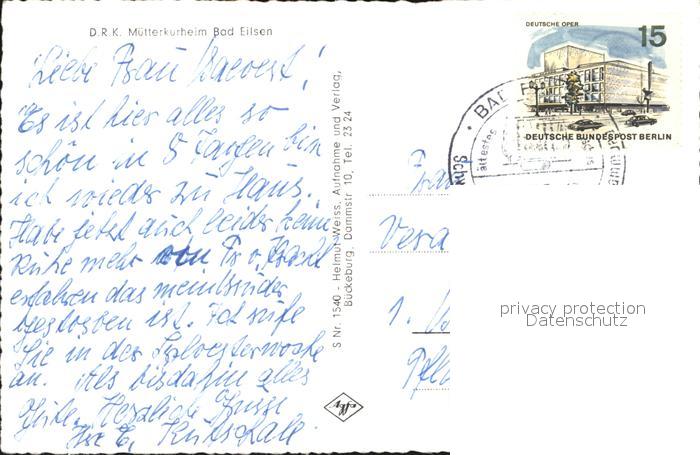 D.R.K. Mütterkurheim Bad Eilsen
Liebe Frau
Es ist hier alles so
schön in 5 Tagen bin
ich wieder zu Haus.
Habe jetzt auch leider keine
Ruhe mehr
erfahren das mein
gestorben ist. Ich rufe
Sie in der Sylvesterwoche
an. Also bis dahin alles
Gute. Herzliche Grüsse
Ihre E.
S Nr. 1540 - Helmut Weiss, Aufnahme und Verlag,
Bückeburg, Dammstr 10, Tel. 23 24
Agfa
DEUTSCHE OPER
15
DEUTSCHE BUNDESPOST BERLIN
BAD
ältestes
Frau
Vera
1.
privacy protection
Datenschutz